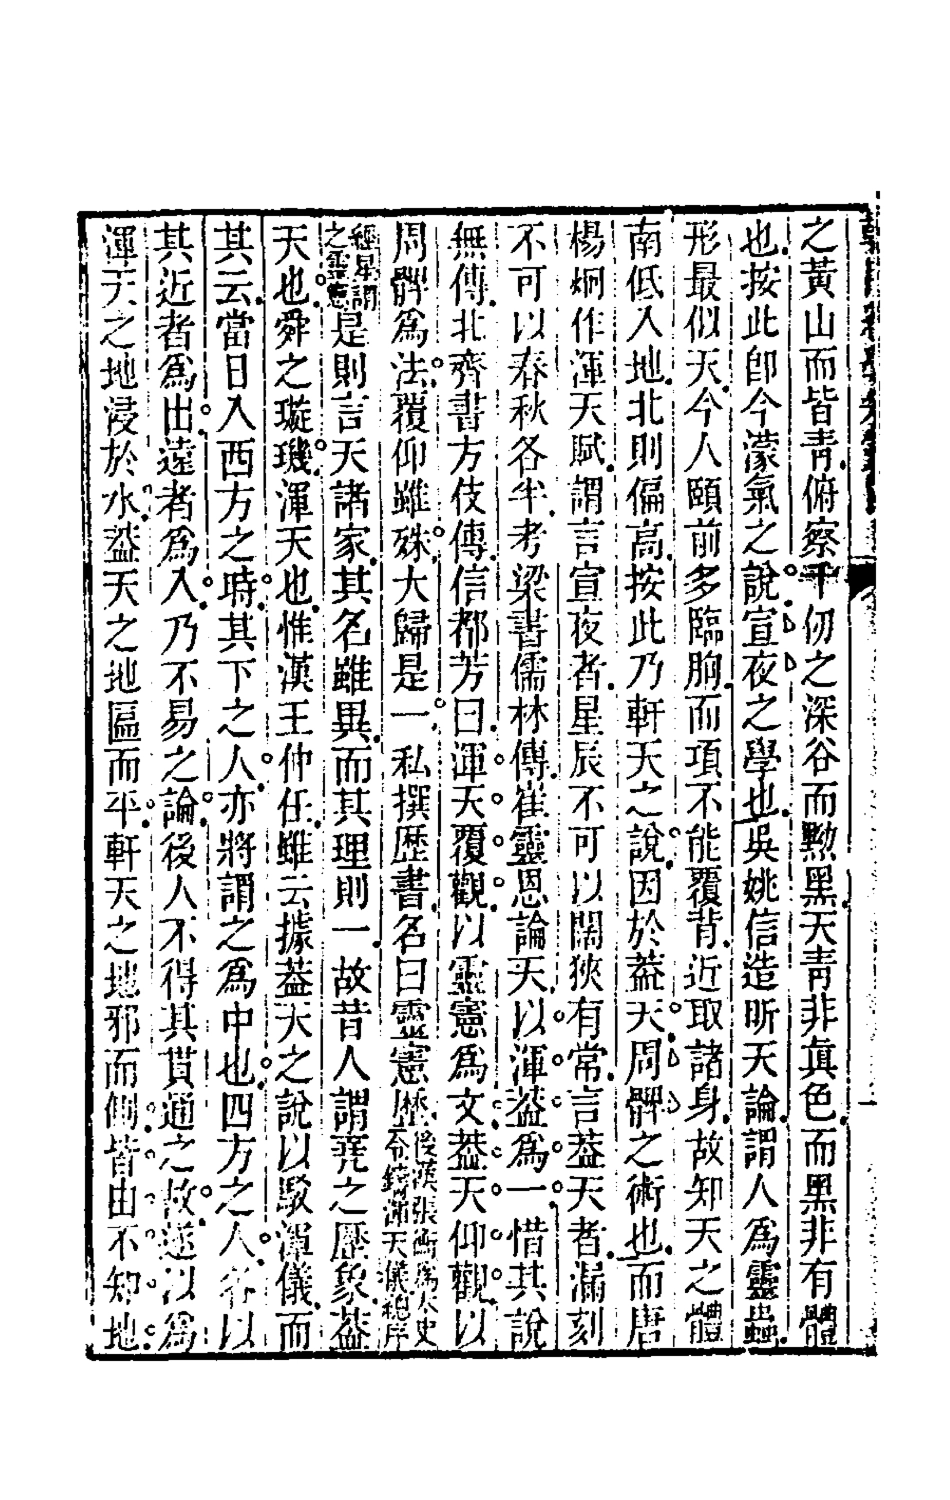 之黃山而皆靑俯察千仞之深谷而黝黑天青非眞色而黑非有體
也按此卽今濛氣之說宣夜之學也吳姚信造昕天論謂人爲靈蟲
形最似天今人頤前多臨胸而項不能覆背近取諸身故知天之體
南低入地北則偏高按此乃軒天之說因於葢天周髀之術也而唐
楊炯作渾天賦謂言宣夜者星辰不可以闊狹有常言葢天者漏刻
不可以春秋各半考梁書儒林傳崔靈恩論天以渾葢爲一惜其說
無傳北齊書方伎傳信都芳曰渾天覆觀以靈憲爲文葢天仰觀以
周髀爲法覆仰雖殊大歸是一私撰歷書名曰靈憲歷後漢張衡爲太史令鑄渾天儀總序
經星謂之靈憲是則言天諸家其名雖異而其理則一故昔人謂堯之歷象葢
天也舜之璇璣渾天也惟漢王仲任雖云據葢天之說以駁渾儀而
其云當日入西方之時其下之人亦將謂之爲中也四方之人各以
其近者爲出遠者爲入乃不易之論後人不得其貫通之故遂以爲
渾天之地浸於水葢天之地區而平軒天之地邪而側皆由不知地